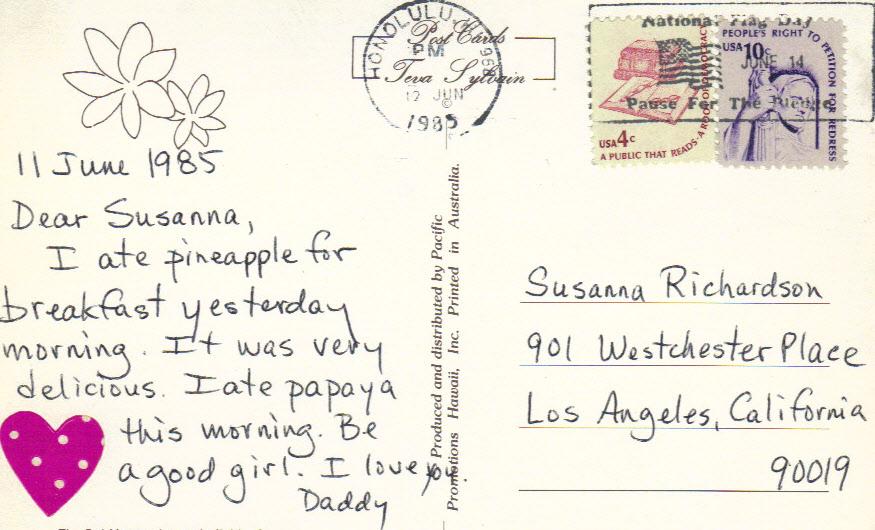 11 June 1985
Dear Susanna,
I ate pineapple for
breakfast yesterday
morning. It was very
delicious. I ate papaya
this morning. Be
a good girl. I love you.
Daddy
Post Cards
Teva Sylvain
©
HONOLULU, HI
PM
12 JUN
1985
National Flag Day
JUNE 14
Pause For The Pledge
USA 4c
A PUBLIC THAT READS · A ROOT OF DEMOCRACY
PEOPLE'S RIGHT TO PETITION FOR REDRESS
USA 10c
Produced and distributed by Pacific
Promotions Hawaii, Inc. Printed in Australia.
Susanna Richardson
901 Westchester Place
Los Angeles, California
90019